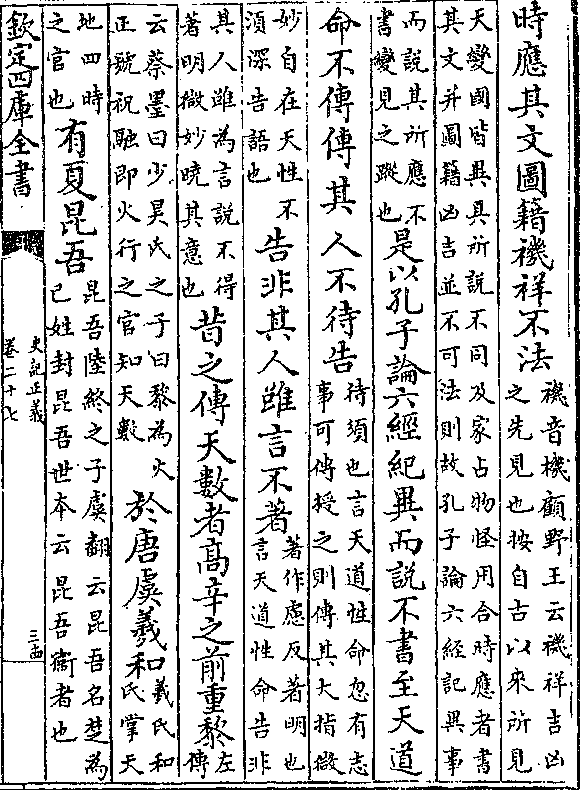 時應其文圖籍禨祥不法禨音機顧野王云禨祥吉凶之先見也按自古以來所見
天變國皆異具所說不同及家占物怪用合時應者書其文并圖籍凶吉並不可法則故孔子論六經記異事
而說其所應不書變見之蹤也是以孔子論六經紀異而說不書至天道
命不傳傳其人不待告待須也言天道性命忽有志事可傳授之則傳其大指微
妙自在天性不須深告語也告非其人雖言不著著作慮反著明也言天道性命告非
其人雖為言說不得著明微妙曉其意也昔之傳天數者高辛之前重黎左傳
云蔡墨曰少昊氏之子曰黎為火正號祝融即火行之官知天數於唐虞羲和羲氏和氏掌天
地四時之官也有夏昆吾昆吾陸終之子虞翻云昆吾名楚為己姓封昆吾世本云昆吾衛者也
欽定四庫全書
史記正義
卷二十七
三十四